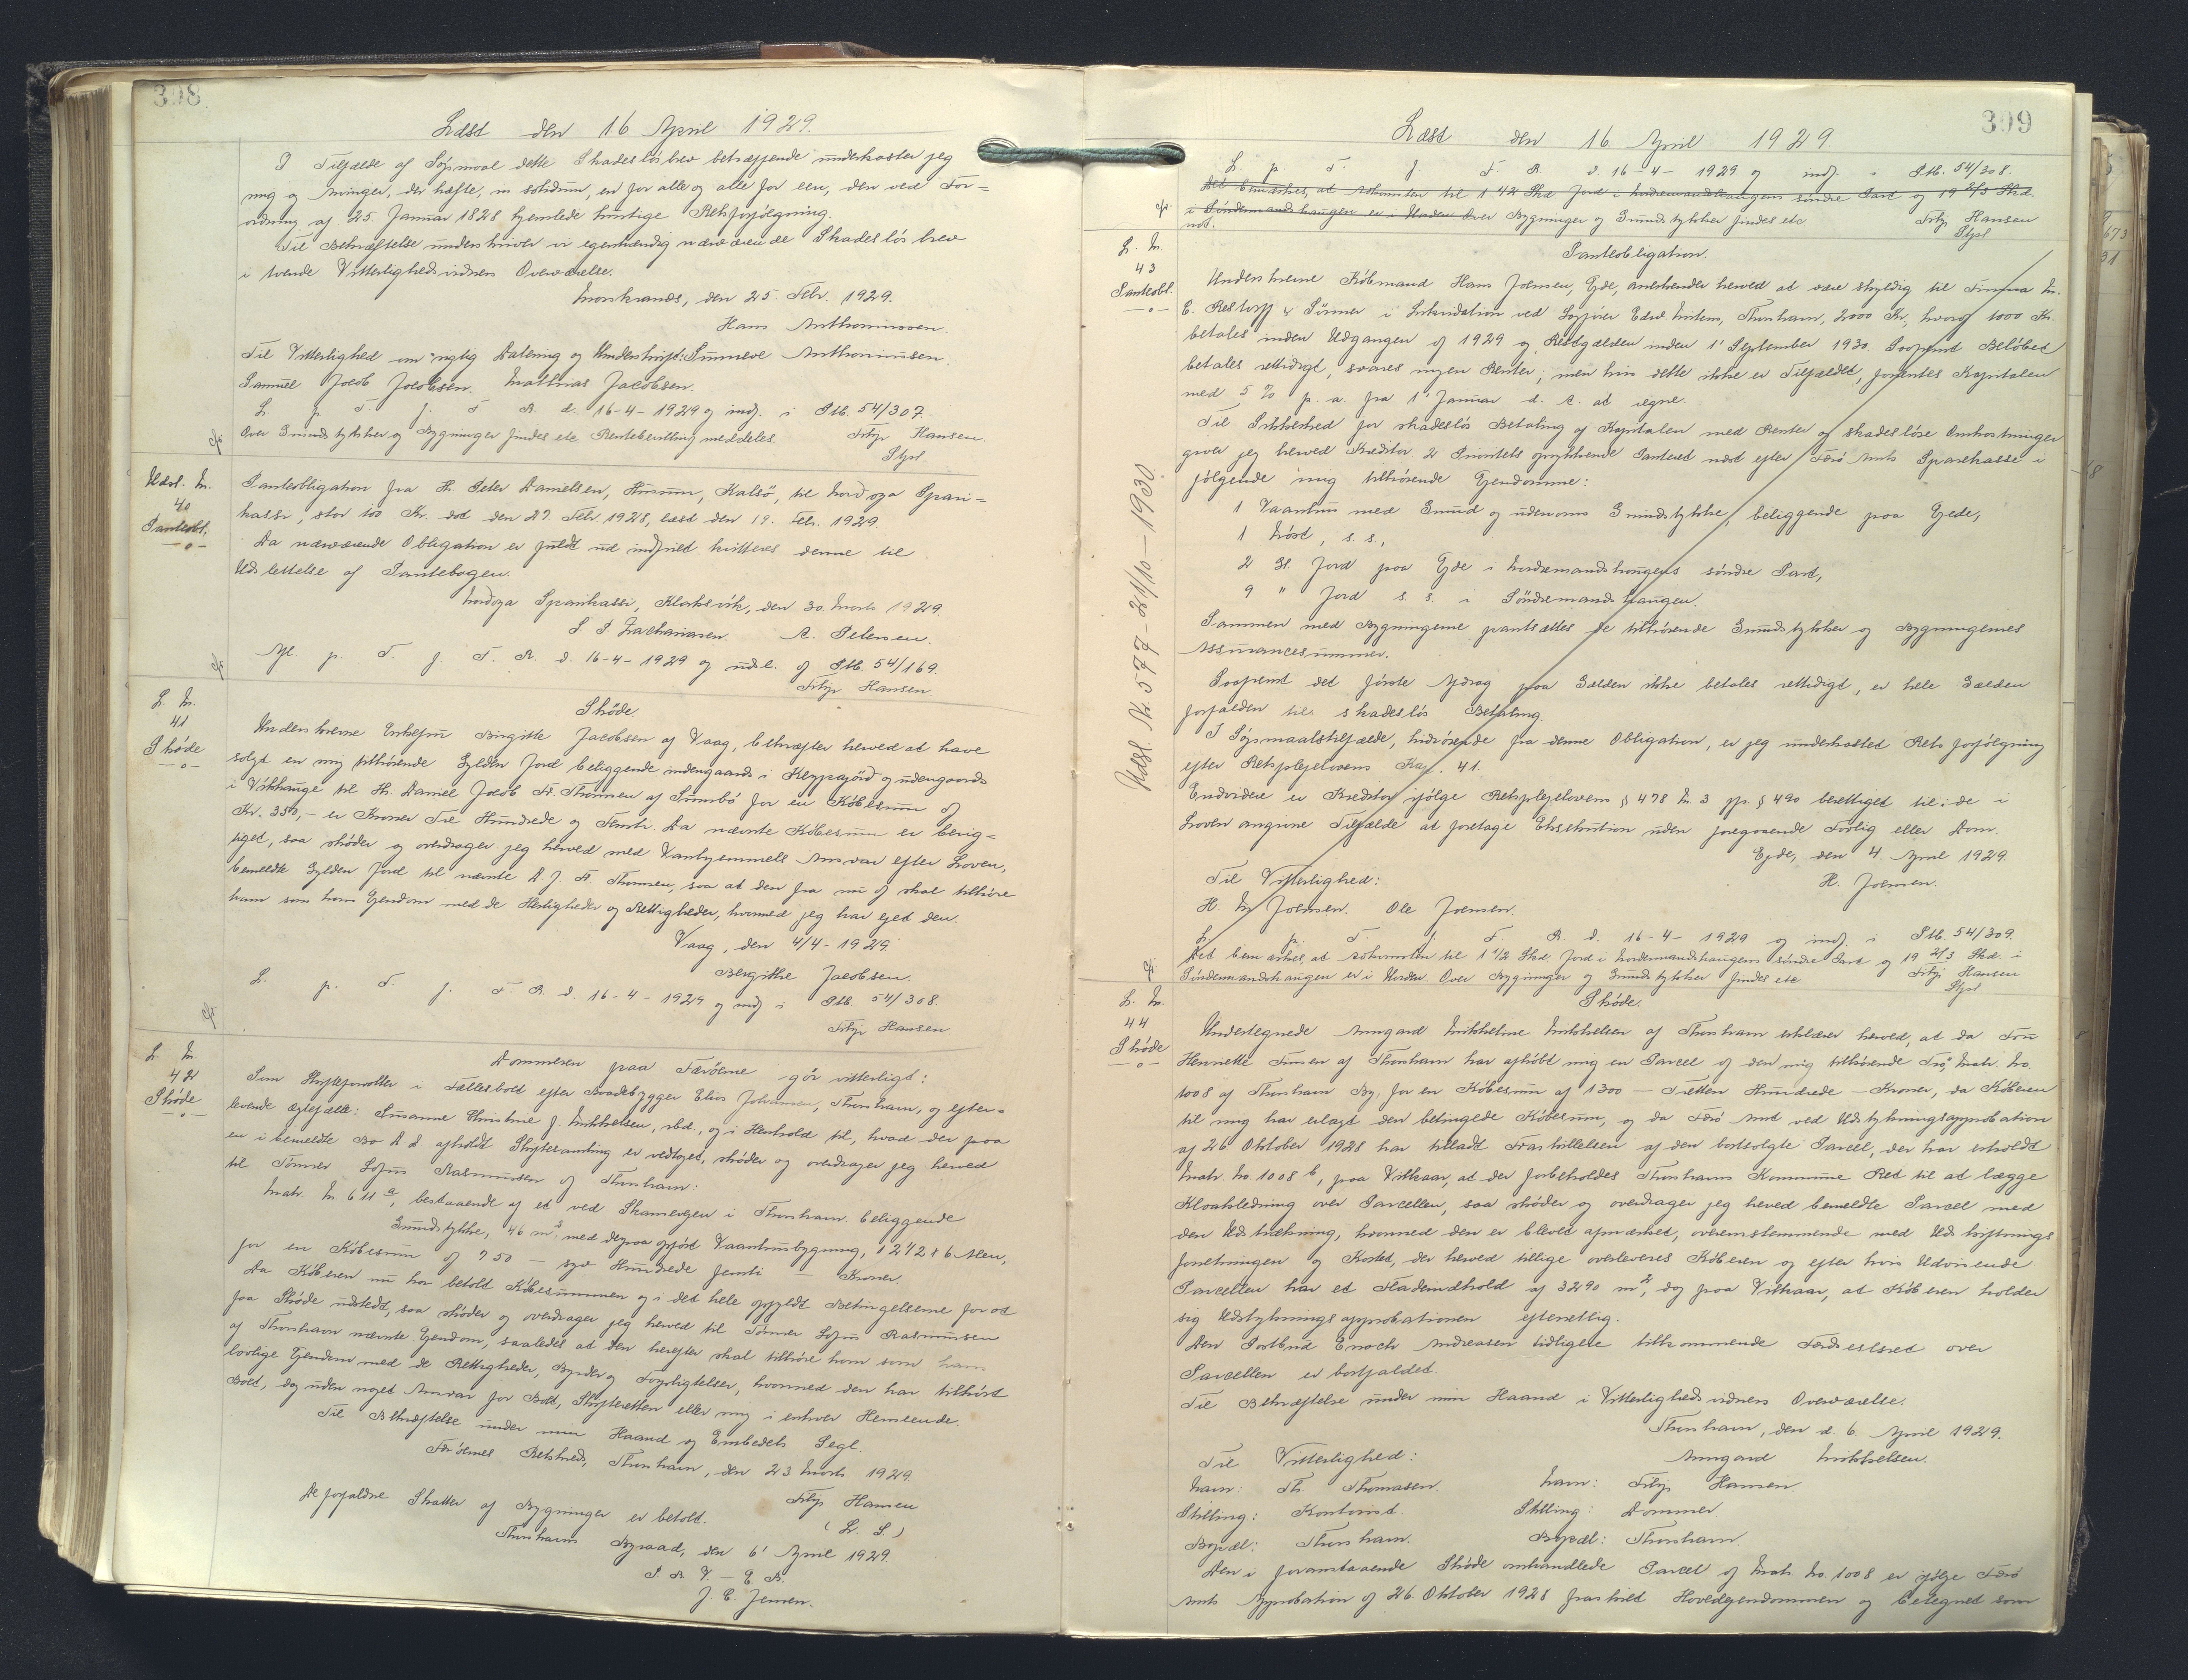 308
Læst den 16 April 1929.
I Tilfælde af Søgsmaal dette Skadesløsbrev betræffende underkaster jeg
mig og Arvinger, der hæfte, in solidum, en for alle og alle for een, den ved For=
ordning af 25. Januar 1828 hjemlede hurtige Retsforfølgning.
Til Bekræftelse underskriver vi egenhændig nærværende Skadesløsbrev
i tvende Vitterlighedsvidners Overværelse.
Morskranes, den 25. Febr. 1929.
Hans Anthoniussen.
Til Vitterlighed om rigtig Datering og Underskrift: Sunneve Anthoniusen.
Samuel Jacob Jacobsen. Mathias Jacobsen.
L. p. T. f. F. R. d. 16-4-1929 og indf. i Ptb. 54/307.
Over Grundstykker og Bygninger findes etc Rentebevilling meddeles.
Filip Hansen.
Stpl
Udsl. N.
40
Panteobl.
Panteobligation fra Hr. Peter Danielsen, Húsum, Kalsø, til Nordoya Spari=
kassi, stor 100 Kr. dat den 27. Febr. 1928, læst den 19. Febr. 1929.
Da nærværende Obligation er fuldt ud indfriet kvitteres denne til
Udslettelse af Pantebogen.
Nordoya Sparikassi, Klaksvík, den 30. Marts 1929.
L. P. Zachariasen. A. Petersen.
Afl. p. T. f. F. R. d. 16-4-1929 og udsl. af Ptb. 54/169.
Filip Hansen
L. N.
41
Skøde
Skøde.
Underskrevne Enkefru Birgitte Jacobsen af Vaag, bekræfter herved at have
solgt en mig tilhørende Gylden Jord beliggende indengaards i Keypajørð og udengaards
i Vikhauge til Hr. Daniel Jacob Fr. Thomsen af Sumbø for en Købesum af
Kr. 350,- er Kroner Tre Hundrede og Femti. Da nævnte Købesum er berig=
tiget, saa skøder og overdrager jeg herved med Vanhjemmels Ansvar efter Loven,
bemeldte Gylden Jord til nævnte D. J. Fr. Thomsen, saa at den fra nu af skal tilhøre
ham som hans Ejendom med de Herligheder og Rettigheder, hvormed jeg har ejet den.
Vaag, den 4/4-1929
Birgithe Jacobsen.
L. p. T. f. F. R. d. 16-4-1929 og indf i Ptb. 54/308.
Filip Hansen
L. N.
42
Skøde
Dommeren paa Færøerne gør vitterligt:
Som Skifteforvalter i Fællesboet efter Baadebygger Elias Johannesen, Thorshavn, og efter=
levende Ægtefælle: Susanne Christine J. Mikkelsen, sbd., og i Henhold til, hvad der paa
en i bemeldte Bo D. D. afholdt Skiftesamling er vedtaget, skøder og overdrager jeg herved
til Tømrer Sofus Rasmussen af Thorshavn:
Matr. N. 611 a, bestaaende af et ved Skansevejen i Thorshavn beliggende
Grundstykke, 46 m², med derpaa opført Vaaningshusbygning, 12 1/2 × 6 Alen,
for en Købesum af 750 — syv Hundrede femti — Kroner.
Da Køberen nu har betalt Købesummen og i det hele opfyldt Betingelserne for at
faa Skøde udstedt, saa skøder og overdrager jeg herved til Tømrer Sofus Rasmussen
af Thorshavn nævnte Ejendom, saaledes at den herefter skal tilhøre ham som hans
lovlige Ejendom med de Rettigheder, Byrder og Forpligtelser, hvormed den har tilhørt
Boet, dog uden noget Ansvar for Boet, Skifteretten eller mig i enhver Henseende.
Til Bekræftelse under min Haand og Embedets Segl.
Færøernes Retskreds, Thorshavn, den 23 Marts 1929.
Filip Hansen
(L. S.)
De forfaldne Skatter af Bygninger er betalt.
Thorshavns Byraad, den 6' April 1929.
P. B. V. — E. B.
J. C. Jensen.
309
Læst den 16 April 1929.
L. p. T. f. F. R. d. 16-4-1929 og indf. i Ptb. 54/308.
Det bemærkes, at Adkomsten til 1 1/2 Skd Jord i Nordremandshaugens søndre Part og 19 2/3 Skd.
i Søndremandshaugen er i Orden Over Bygninger og Grundstykker findes etc
Filip Hansen
Stpl
L. N.
43
Panteobl.
Panteobligation.
Underskrevne Købmand Hans Joensen, Ejde, anerkender herved at være skyldig til Firma M.
C. Restorff & Sønner i Likvidation ved Sagfører Edw. Mitens, Thorshavn, 2000 Kr., hvoraf 1000 Kr.
betales inden Udgangen af 1929 og Restgælden inden 1' September 1930. Saafremt Beløbet
betales rettidigt, svares ingen Renter; men hvis dette ikke er Tilfældet, forrentes Kapitalen
med 5 % p. a. fra 1' Januar d. A. at regne.
Til Sikkerhed for skadesløs Betaling af Kapitalen med Renter og skadesløse Omkostninger
giver jeg herved Kreditor 2 Prioritets oprykkende Panteret næst efter Færø Amts Sparekasse i
følgende mig tilhørende Ejendomme:
1 Vaanhus med Grund og udenoms Grundstykke, beliggende paa Ejde,
1 Nøst, s. s.,
2 Gl. Jord paa Ejde i Nordremandshaugens søndre Part,
9 " Jord s. s. i Søndremandshaugen.
Sammen med Bygningerne pantsættes de tilhørende Grundstykker og Bygningernes
Assurancesummer.
Saafremt det første Afdrag paa Gælden ikke betales rettidigt, er hele Gælden
forfalden til skadesløs Betaling.
I Søgsmaalstilfælde, hidrørende fra denne Obligation, er jeg underkastet Retsforfølgning
efter Retsplejelovens Kap. 41.
Endvidere er Kreditor ifølge Retsplejelovens § 478 N. 3 jfr. § 490 berettiget til i de i
Loven angivne Tilfælde at foretage Eksekution uden foregaaende Forlig eller Dom.
Ejde, den 4. April 1929.
H. Joensen.
Til Vitterlighed:
H. M Joensen. Ole Joensen.
L. p. T. f. F. R. d. 16-4-1929 og indf i Ptb. 54/309.
Det bemærkes, at Adkomsten til 1 1/2 Skd. Jord i Nordremandshaugens søndre Part og 19 2/3 Skd. i
Søndremandshaugen er i Orden Over Bygninger og Grundstykker findes etc
Filip Hansen
Stpl
Udsl. N. 577 - 21/10 - 1930.
L. N.
44
Skøde
Skøde.
Undertegnede Anngard Mikkeline Mikkelsen af Thorshavn erklærer herved, at da Fru
Henriette Finsen af Thorshavn har afkøbt mig en Parcel af den mig tilhørende Trø, Matr. No.
1008 af Thorshavn By, for en Købesum af 1300 — Tretten Hundrede — Kroner, da Køberen
til mig har erlagt den betingede Købesum, og da Færø Amt ved Udstykningsapprobation
af 26. Oktober 1928 har tilladt Frastillelsen af den bortsolgte Parcel, der har erholdt
Matr. No. 1008 b, paa Vilkaar, at der forbeholdes Thorshavns Kommune Ret til at lægge
Kloakledning over Parcellen, saa skøder og overdrager jeg herved bemeldte Parcel med
den Udstrækning, hvormed den er blevet afmærket, overensstemmende med Udskiftnings
forretningen og Kortet, der herved tillige overleveres Køberen og efter hvis Udvisende
Parcellen har et Fladeindhold af 3290 m², dog paa Vilkaar, at Køberen holder
sig Udstykningsapprobationen efterrettelig.
Den Postbud Enoch Andreasen tidligere tilkommende Færdselsret over
Parcellen er bortfaldet.
Til Bekræftelse under min Haand i Vitterlighedsvidners Overværelse.
Thorshavn, den d. 6. April 1929.
Anngard Mikkelsen.
Til Vitterlighed:
Navn: Th. Thomasen. Navn: Filip Hansen.
Stilling: Kontorist. Stilling: Dommer.
Bopæl: Thorshavn. Bopæl: Thorshavn.
Den i foranstaaende Skøde omhandlede Parcel af Matr. No. 1008 er ifølge Færø
Amts Approbation af 26. Oktober 1928 fraskilt Hovedejendommen og betegnet som